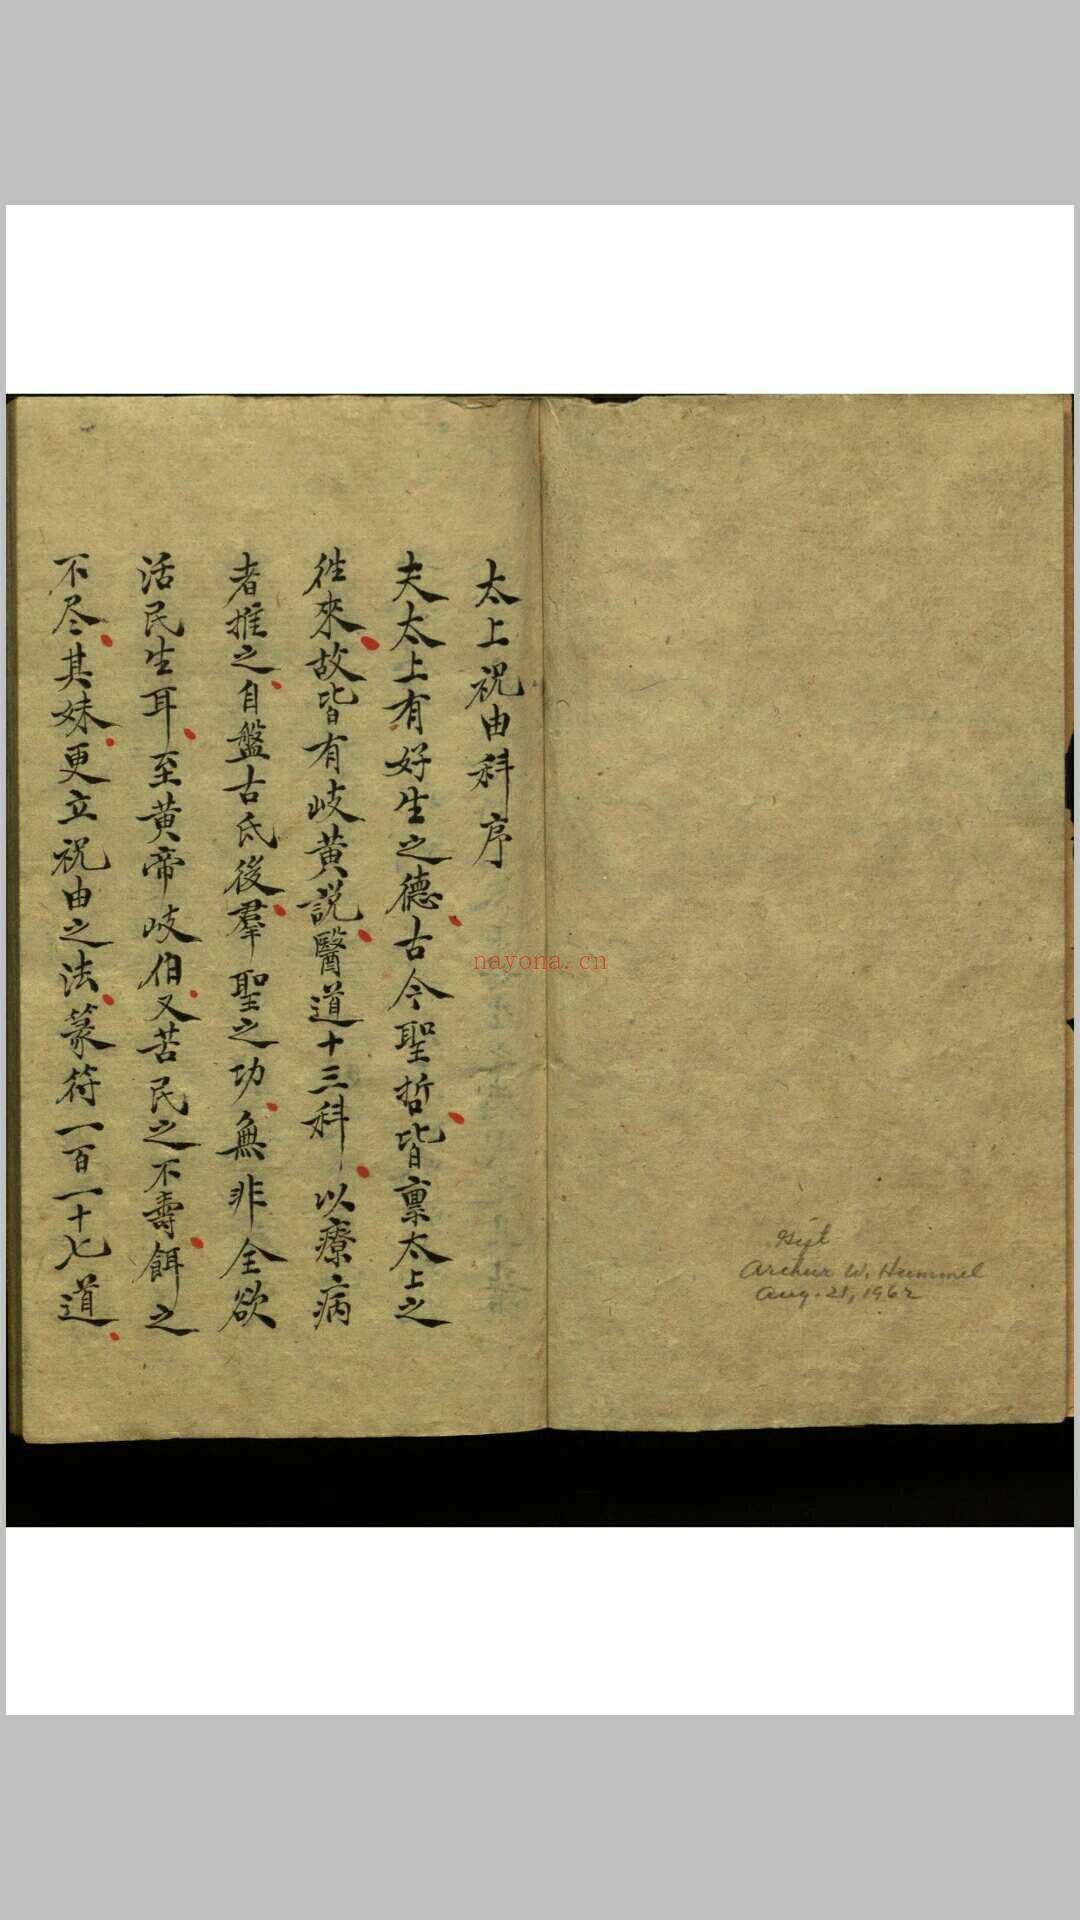 太上祝由科序
夫太上有好生之德古今聖哲皆禀太上之
徃來故皆有岐黄説醫道十三科以療病
者推之自盤古氏後羣聖之功無非全欲
活民生耳至黄帝岐伯又苦民之不壽餌之
不尽其妹更立祝由之法篆符一百一十七道
Gift
Arthur W. Hummel
Aug. 21, 1962
nayona.cn